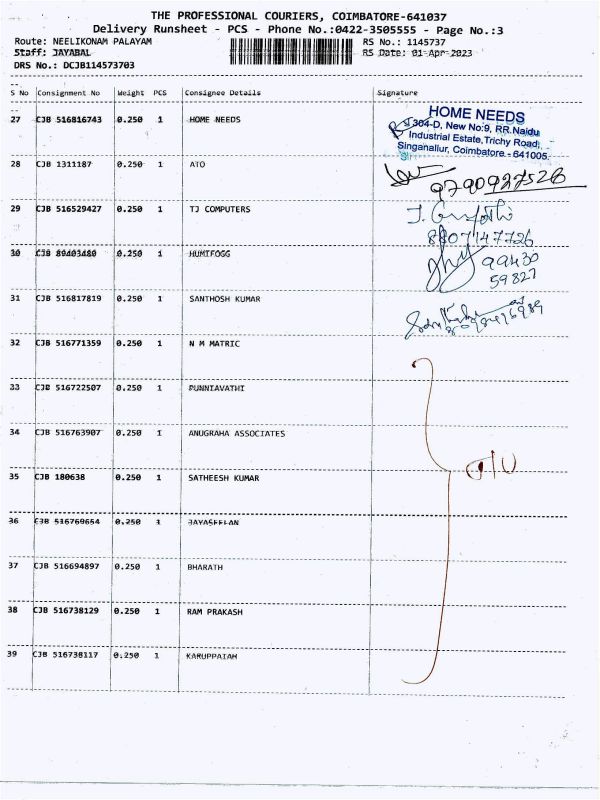 THE PROFESSIONAL COURIERS, COIMBATORE-641037
Delivery Runsheet - PCS - Phone No.:0422-3505555 - Page No.:3
Route: NEELIKONAM PALAYAM RS No.: 1145737
Staff: JAYABAL RS Date: 01-Apr-2023
DRS No.: DCJB114573703
S No Consignment No Weight PCS Consignee Details Signature
27 CJB 516816743 0.250 1 HOME NEEDS
HOME NEEDS
304-D, New No:9, RR.Naidu
Industrial Estate,Trichy Road,
Singanallur, Coimbatore - 641005.
28 CJB 1311187 0.250 1 ATO
9790927526
29 CJB 516529427 0.250 1 TJ COMPUTERS
8807147726
30 CJB 89403480 0.250 1 HUMIFOGG
99430
59827
31 CJB 516817819 0.250 1 SANTHOSH KUMAR
32 CJB 516771359 0.250 1 N M MATRIC
33 CJB 516722507 0.250 1 PUNNIAVATHI
34 CJB 516763907 0.250 1 ANUGRAHA ASSOCIATES
35 CJB 180638 0.250 1 SATHEESH KUMAR
36 CJB 516769654 0.250 1 JAYASEELAN
37 CJB 516694897 0.250 1 BHARATH
38 CJB 516738129 0.250 1 RAM PRAKASH
39 CJB 516738117 0.250 1 KARUPPAIAH